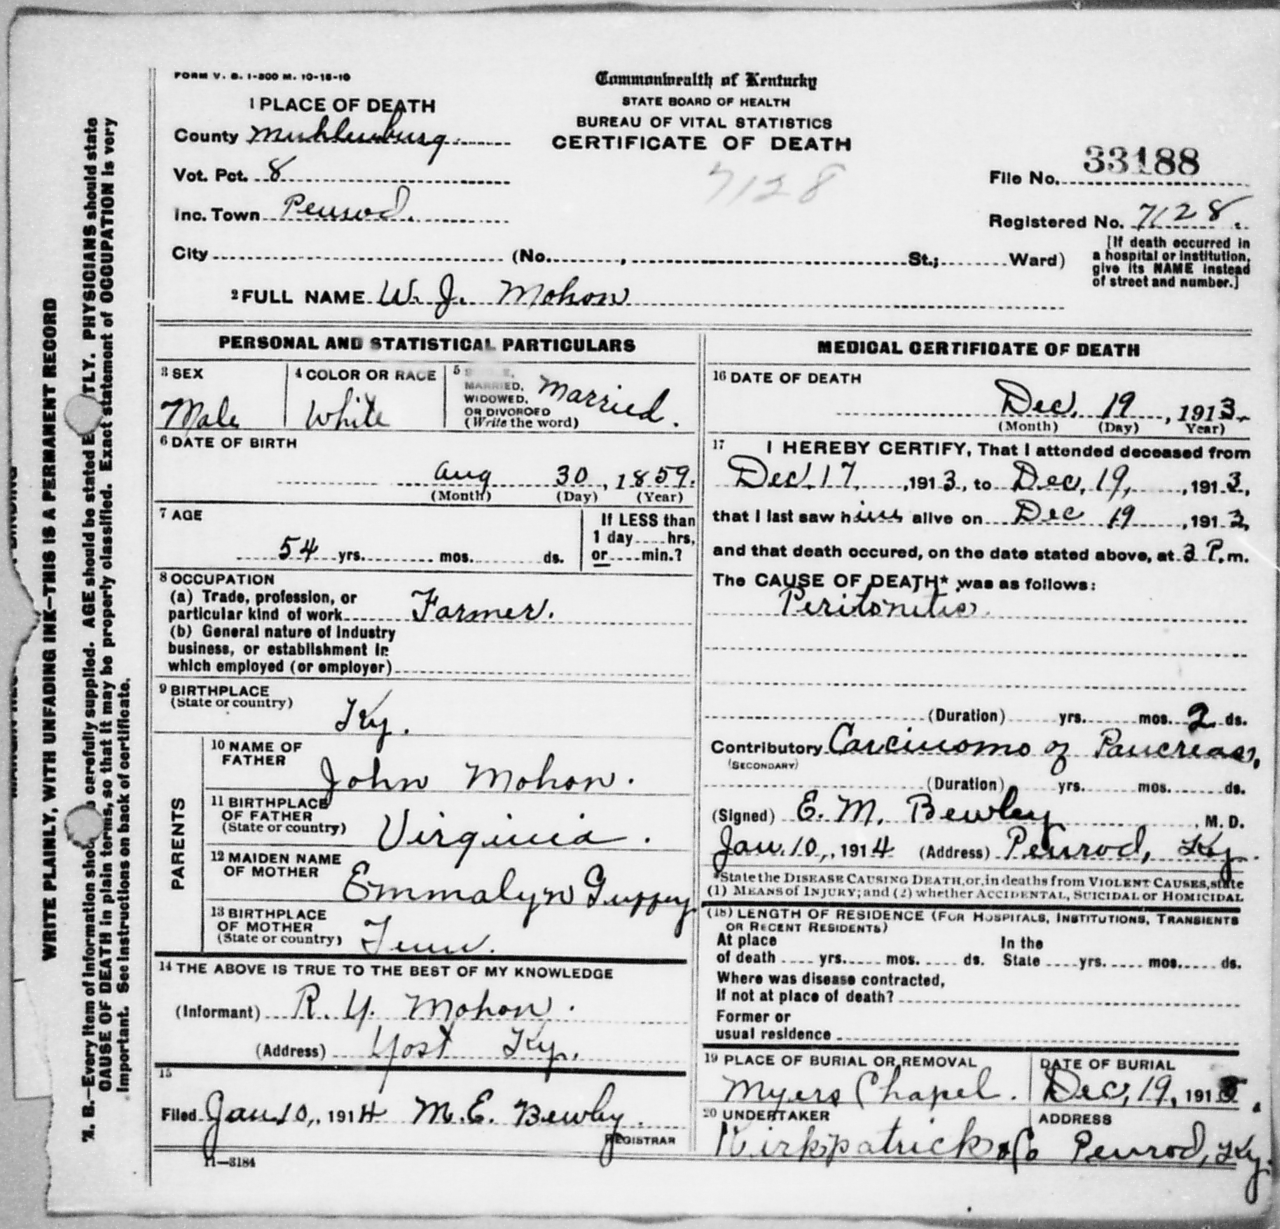 FORM V. S. 1-300 M. 10-18-10
Commonwealth of Kentucky
STATE BOARD OF HEALTH
BUREAU OF VITAL STATISTICS
CERTIFICATE OF DEATH
7128
1 PLACE OF DEATH
County Muhlenburg
Vot. Pct. 8
Inc. Town Penrod.
City (No. , St.; Ward)
File No. 33188
Registered No. 7128.
[If death occurred in
a hospital or institution,
give its NAME instead
of street and number.]
2 FULL NAME W. J. Mohon
PERSONAL AND STATISTICAL PARTICULARS
3 SEX
Male
4 COLOR OR RACE
White
5
MARRIED,
WIDOWED,
OR DIVORCED
(Write the word)
Married.
6 DATE OF BIRTH
Aug 30, 1859.
(Month) (Day) (Year)
7 AGE
54 yrs. mos. ds.
If LESS than
1 day hrs,
or min.?
8 OCCUPATION
(a) Trade, profession, or
particular kind of work Farmer.
(b) General nature of Industry
business, or establishment in
which employed (or employer)
9 BIRTHPLACE
(State or country)
Ky.
PARENTS
10 NAME OF
FATHER
John Mohon.
11 BIRTHPLACE
OF FATHER
(State or country)
Virginia.
12 MAIDEN NAME
OF MOTHER
Emmalyn Guffey
13 BIRTHPLACE
OF MOTHER
(State or country) Tenn.
14 THE ABOVE IS TRUE TO THE BEST OF MY KNOWLEDGE
(Informant) R. Y. Mohon.
(Address) Yost Ky.
15
Filed Jan 10, 1914 M. E. Bewley.
REGISTRAR
11—3184
MEDICAL CERTIFICATE OF DEATH
16 DATE OF DEATH
Dec. 19, 1913.
(Month) (Day) Year)
17 I HEREBY CERTIFY, That I attended deceased from
Dec. 17, 1913, to Dec. 19, 1913,
that I last saw him alive on Dec 19, 1913,
and that death occured, on the date stated above, at 3 P. m.
The CAUSE OF DEATH* was as follows:
Peritonitis.
(Duration) yrs. mos. 2 ds.
Contributory Carcinoma of Pancreas,
(SECONDARY)
(Duration) yrs. mos. ds.
(Signed) E. M. Bewley, M. D.
Jan. 10, 1914 (Address) Penrod, Ky.
*State the DISEASE CAUSING DEATH, or, in deaths from VIOLENT CAUSES, state
(1) MEANS of INJURY; and (2) whether ACCIDENTAL, SUICIDAL OR HOMICIDAL
(18) LENGTH OF RESIDENCE (FOR HOSPITALS, INSTITUTIONS, TRANSIENTS
OR RECENT RESIDENTS)
At place In the
of death yrs. mos. ds. State yrs. mos. ds.
Where was disease contracted,
If not at place of death?
Former or
usual residence
19 PLACE OF BURIAL OR REMOVAL
Myers Chapel.
DATE OF BURIAL
Dec, 19, 1913.
20 UNDERTAKER
Kirkpatrick & Co
ADDRESS
Penrod, Ky.
WRITE PLAINLY, WITH UNFADING INK—THIS IS A PERMANENT RECORD
N. B.—Every item of information carefully supplied. AGE should be stated PHYSICIANS should state
CAUSE OF DEATH in plain terms, so that it may be properly classified. Exact statement of OCCUPATION is very
important. See instructions on back of certificate.